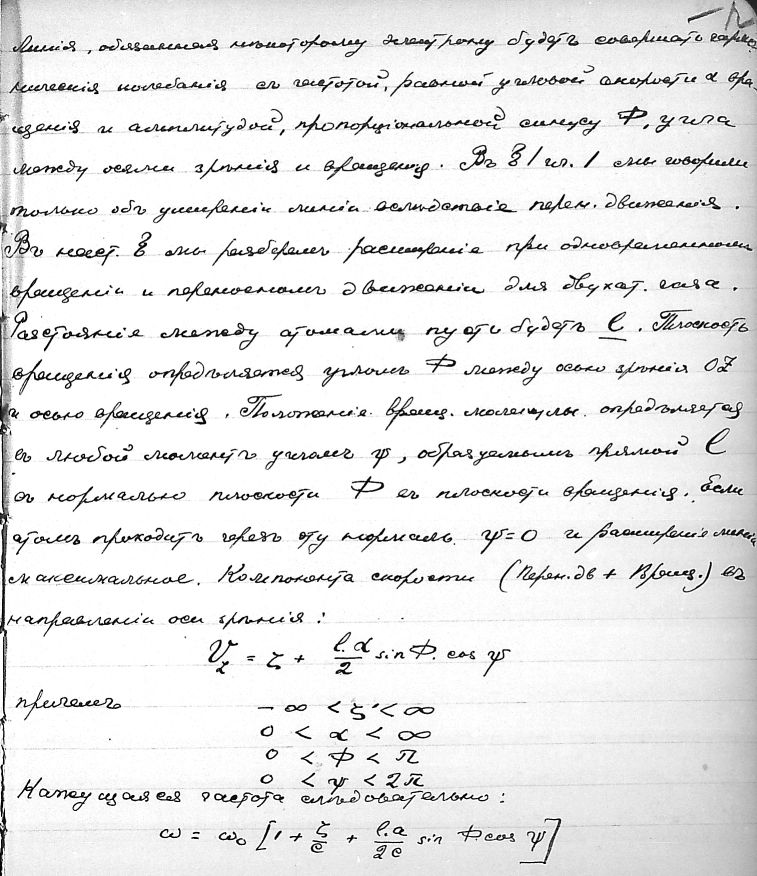 линія, обязанная некоторому электрону будетъ совершать гармо-
ническія колебанія съ частотой, равной угловой скорости α вра-
щенія и амплитудой, пропорціональной синусу Φ, угла
между осями зрѣнія и вращенія. Въ § 1 гл. 1 мы говорили
только объ уширеніи линіи вслѣдствіе перен. движенія.
Въ наст. § мы разберемъ расширеніе при одновременномъ
вращеніи и переносномъ движеніи для двухат. газа.
Разстояніе между атомами пусть будетъ l. Плоскость
вращенія опредѣляется угломъ Φ между осью зрѣнія OZ
и осью вращенія. Положеніе вращ. молекулы опредѣляется
въ любой моментъ угломъ ψ, образуемымъ прямой l
съ нормалью плоскости Φ въ плоскости вращенія. Если
атомъ проходитъ черезъ эту нормаль ψ=0 и расширеніе линіи
максимальное. Компонента скорости (Перен. дв + Вращ.) въ
направленіи оси зрѣнія:
V_z = ζ + l.α/2 sin Φ. cos ψ
причемъ
- ∞ < ζ < ∞
0 < α < ∞
0 < Φ < π
0 < ψ < 2π
Кажущаяся частота слѣдовательно:
ω = ω₀ [1 + ζ/c + l.α/2c sin Φ cos ψ]